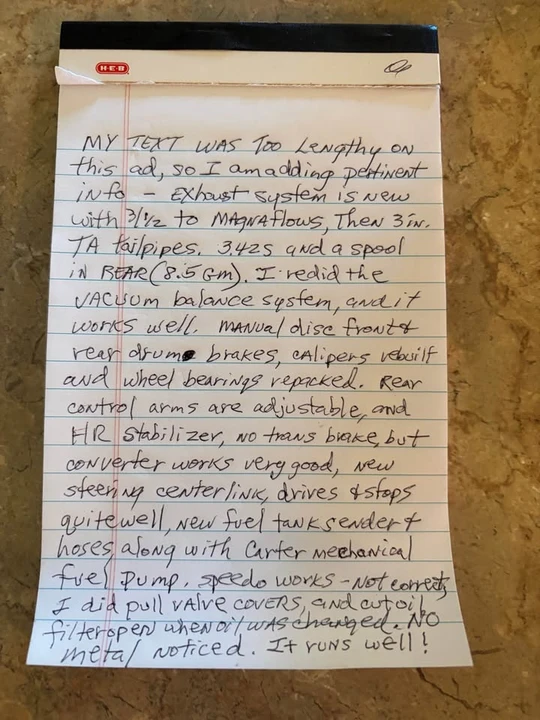 H-E-B
MY TEXT WAS TOO Lengthy ON
this ad, so I am adding pertinent
info - Exhaust system is new
with 3 1/2 to MAGNAflows, Then 3in.
TA tailpipes. 3.42s and a spool
in REAR (8.5 GM). I redid the
VACUUM balance system, and it
works well. MANUAL disc front &
rear drum brakes, calipers rebuilt
and wheel bearings repacked. Rear
control arms are adjustable, and
HR Stabilizer, no trans brake, but
converter works very good, new
steering centerlink, drives & stops
quite well, new fuel tank sender &
hoses, along with Carter mechanical
fuel pump. speedo works - not correct,
I did pull VALVE COVERS, and cut oil
filter open when oil was changed. NO
metal noticed. It runs well!